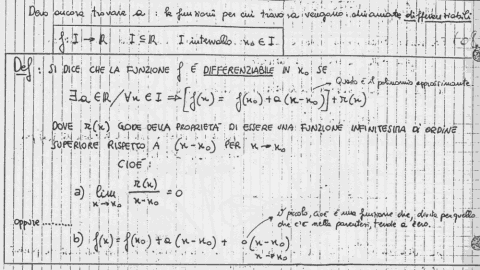 Devo ancora trovare a: le funzioni per cui trovo a vengono chiamate differenziabili
f: I → ℝ I ⊆ ℝ I intervallo x₀ ∈ I
Def: SI DICE CHE LA FUNZIONE f È DIFFERENZIABILE IN x₀ SE
Questo è il polinomio approssimante.
∃ a ∈ ℝ / ∀x ∈ I ⇒ [f(x) = f(x₀) + a(x-x₀)] + r(x)
DOVE r(x) GODE DELLA PROPRIETÀ DI ESSERE UNA FUNZIONE INFINITESIMA DI ORDINE
SUPERIORE RISPETTO A (x-x₀) PER x→x₀
CIOÈ:
a) lim x→x₀ r(x)/(x-x₀) = 0
oppure..........
o piccolo, cioè è una funzione che, divisa per quello
che c'è nella parentesi, tende a zero.
b) f(x) = f(x₀) + a(x-x₀) + o(x-x₀)
x→x₀